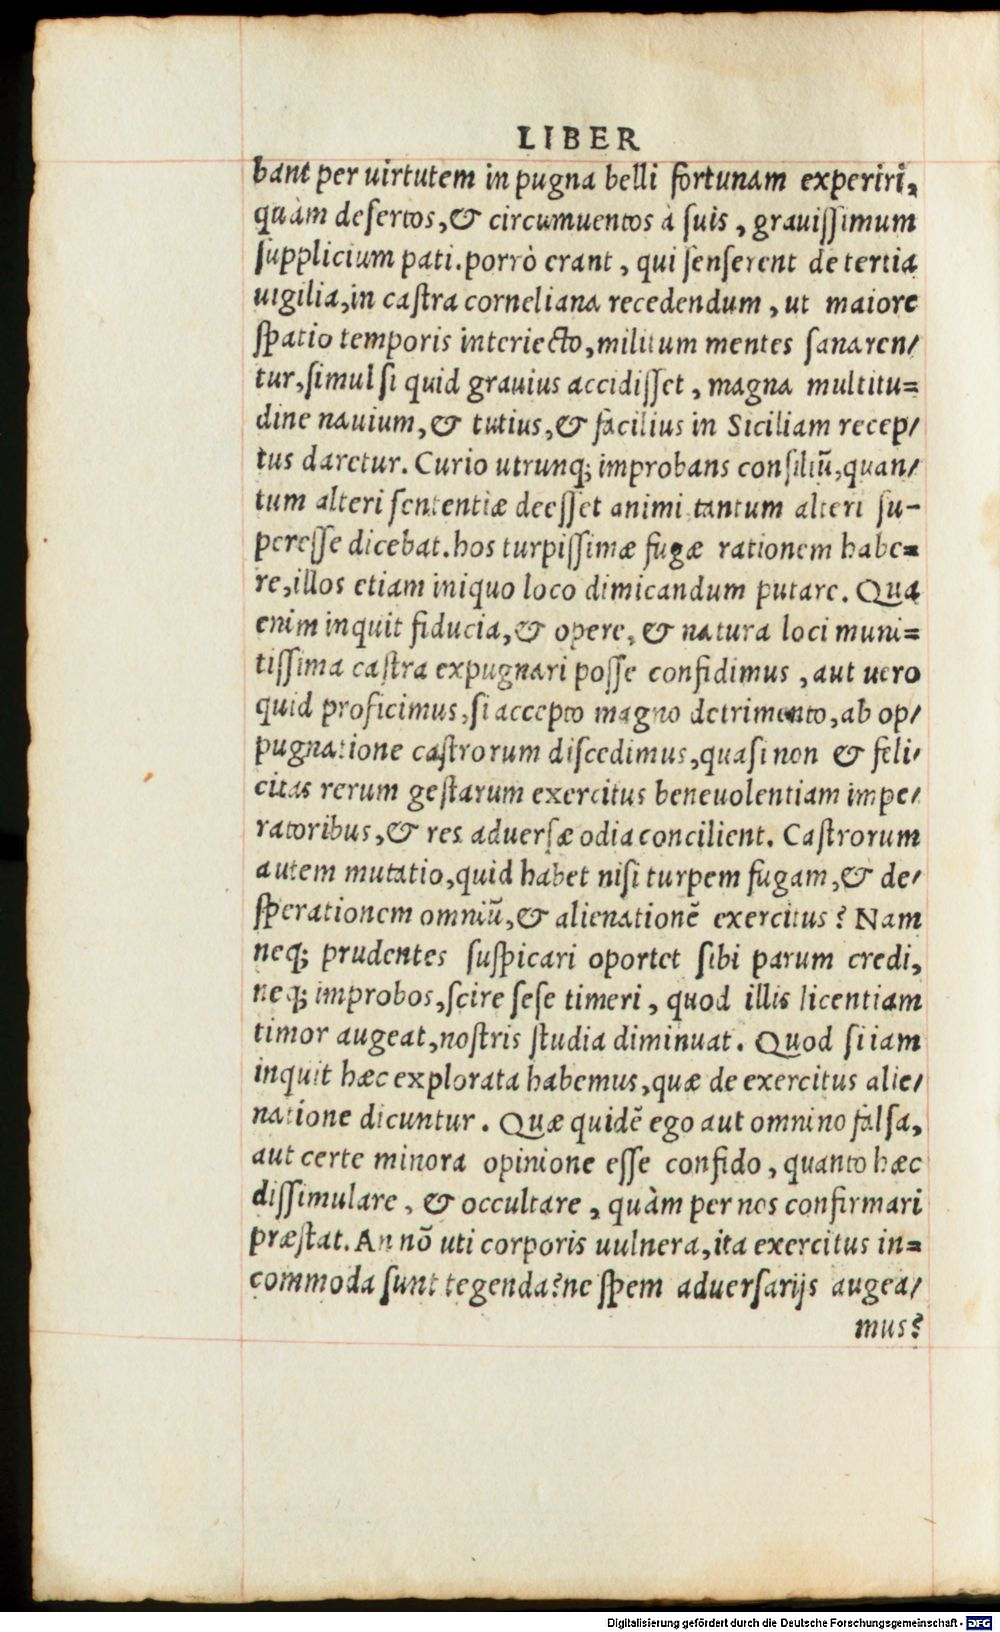 LIBER
bant per uirtutem in pugna belli fortunam experiri,
quàm desertos, & circumuentos à suis, grauissimum
supplicium pati. porrò erant, qui senserent de tertia
uigilia, in castra corneliana recedendum, ut maiore
spatio temporis interiecto, militum mentes sanaren/
tur, simul si quid grauius accidisset, magna multitu=
dine nauium, & tutius, & facilius in Siciliam recep/
tus daretur. Curio utrunq; improbans consiliū, quan/
tum alteri sententiæ deesset animi tantum alteri su-
peresse dicebat. hos turpissimæ fugæ rationem habe=
re, illos etiam iniquo loco dimicandum putare. Qua
enim inquit fiducia, & opere, & natura loci muni=
tissima castra expugnari posse confidimus, aut uero
quid proficimus, si accepto magno detrimento, ab op/
pugnatione castrorum discedimus, quasi non & feli/
citas rerum gestarum exercitus beneuolentiam impe/
ratoribus, & res aduersæ odia concilient. Castrorum
autem mutatio, quid habet nisi turpem fugam, & de/
sperationem omniū, & alienationē exercitus? Nam
neq; prudentes suspicari oportet sibi parum credi,
neq; improbos, scire sese timeri, quod illis licentiam
timor augeat, nostris studia diminuat. Quod si iam
inquit hæc explorata habemus, quæ de exercitus alie/
natione dicuntur. Quæ quidē ego aut omnino falsa,
aut certe minora opinione esse confido, quanto hæc
dissimulare, & occultare, quàm per nos confirmari
præstat. An nō uti corporis uulnera, ita exercitus in=
commoda sunt tegenda? ne spem aduersarijs augea/
mus?
Digitalisierung gefördert durch die Deutsche Forschungsgemeinschaft - DFG